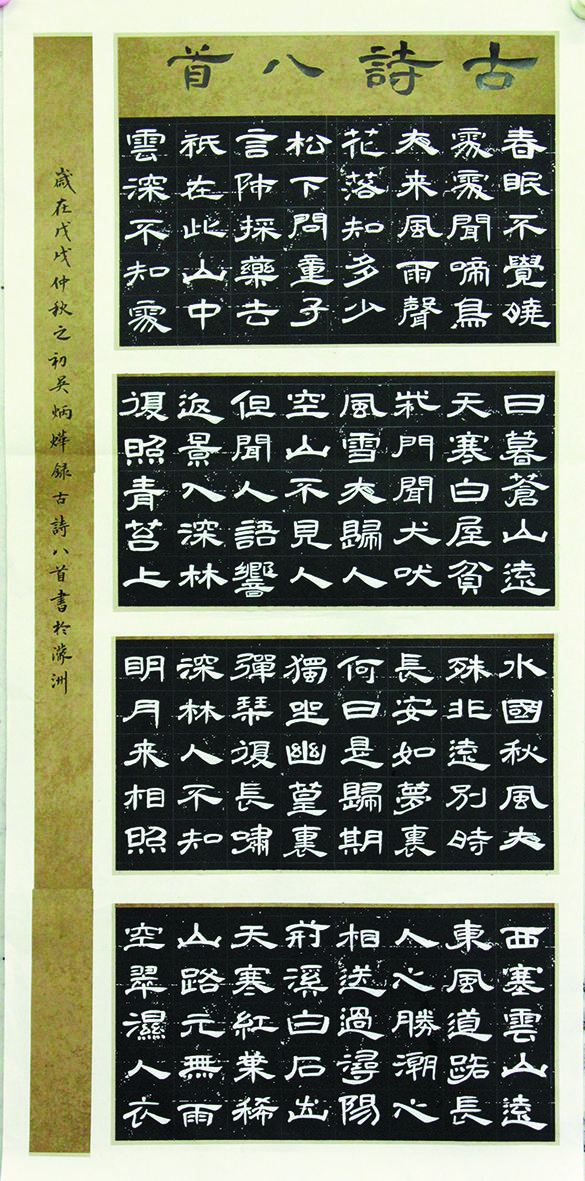 古詩八首
春眠不覺曉
處處聞啼鳥
夜来風雨聲
花落知多少
松下問童子
言師採藥去
祇在此山中
雲深不知處
日暮蒼山遠
天寒白屋貧
柴門聞犬吠
風雪夜歸人
空山不見人
但聞人語響
返景入深林
復照青苔上
水國秋風夜
殊非遠別時
長安如夢裏
何日是歸期
獨坐幽篁裏
彈琴復長嘯
深林人不知
明月来相照
西塞雲山遠
東風道路長
人心勝潮心
相送過潯陽
荊溪白石出
天寒紅葉稀
山路元無雨
空翠濕人衣
歲在戊戌仲秋之初吴炳燁録古詩八首書於濠洲